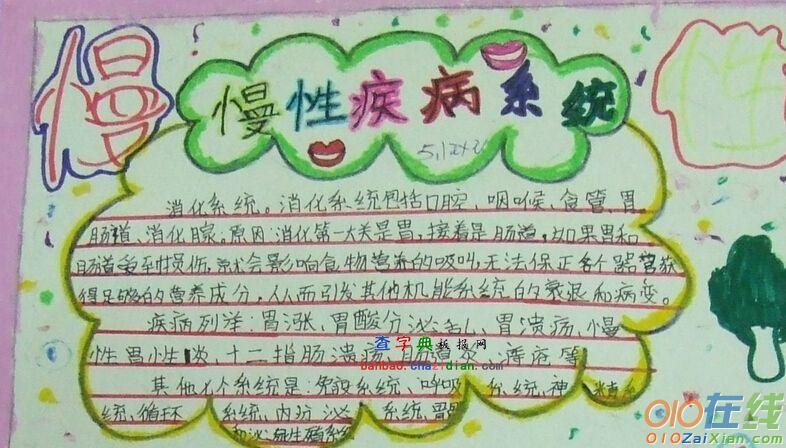 慢
慢性疾病系统
性
消化系统。消化系统包括口腔、咽喉、食管、胃
肠道、消化腺。原因:消化第一大关是胃,接着是肠道,如果胃和
肠道受到损伤,就会影响食物营养的吸收,无法保证各个器官获
得足够的营养成分,从而引发其他机能系统的衰退和病变。
疾病列举:胃涨、胃酸分泌乱、胃溃疡、慢
性胃性炎 十二指肠溃疡、肠道炎、痔疮等
查字典板报网
banbao.chazidian.com
其他八个系统是:免疫系统、呼吸 系统、神
统、循环 系统、内分泌 系统、
010在线
010ZaiXian.com